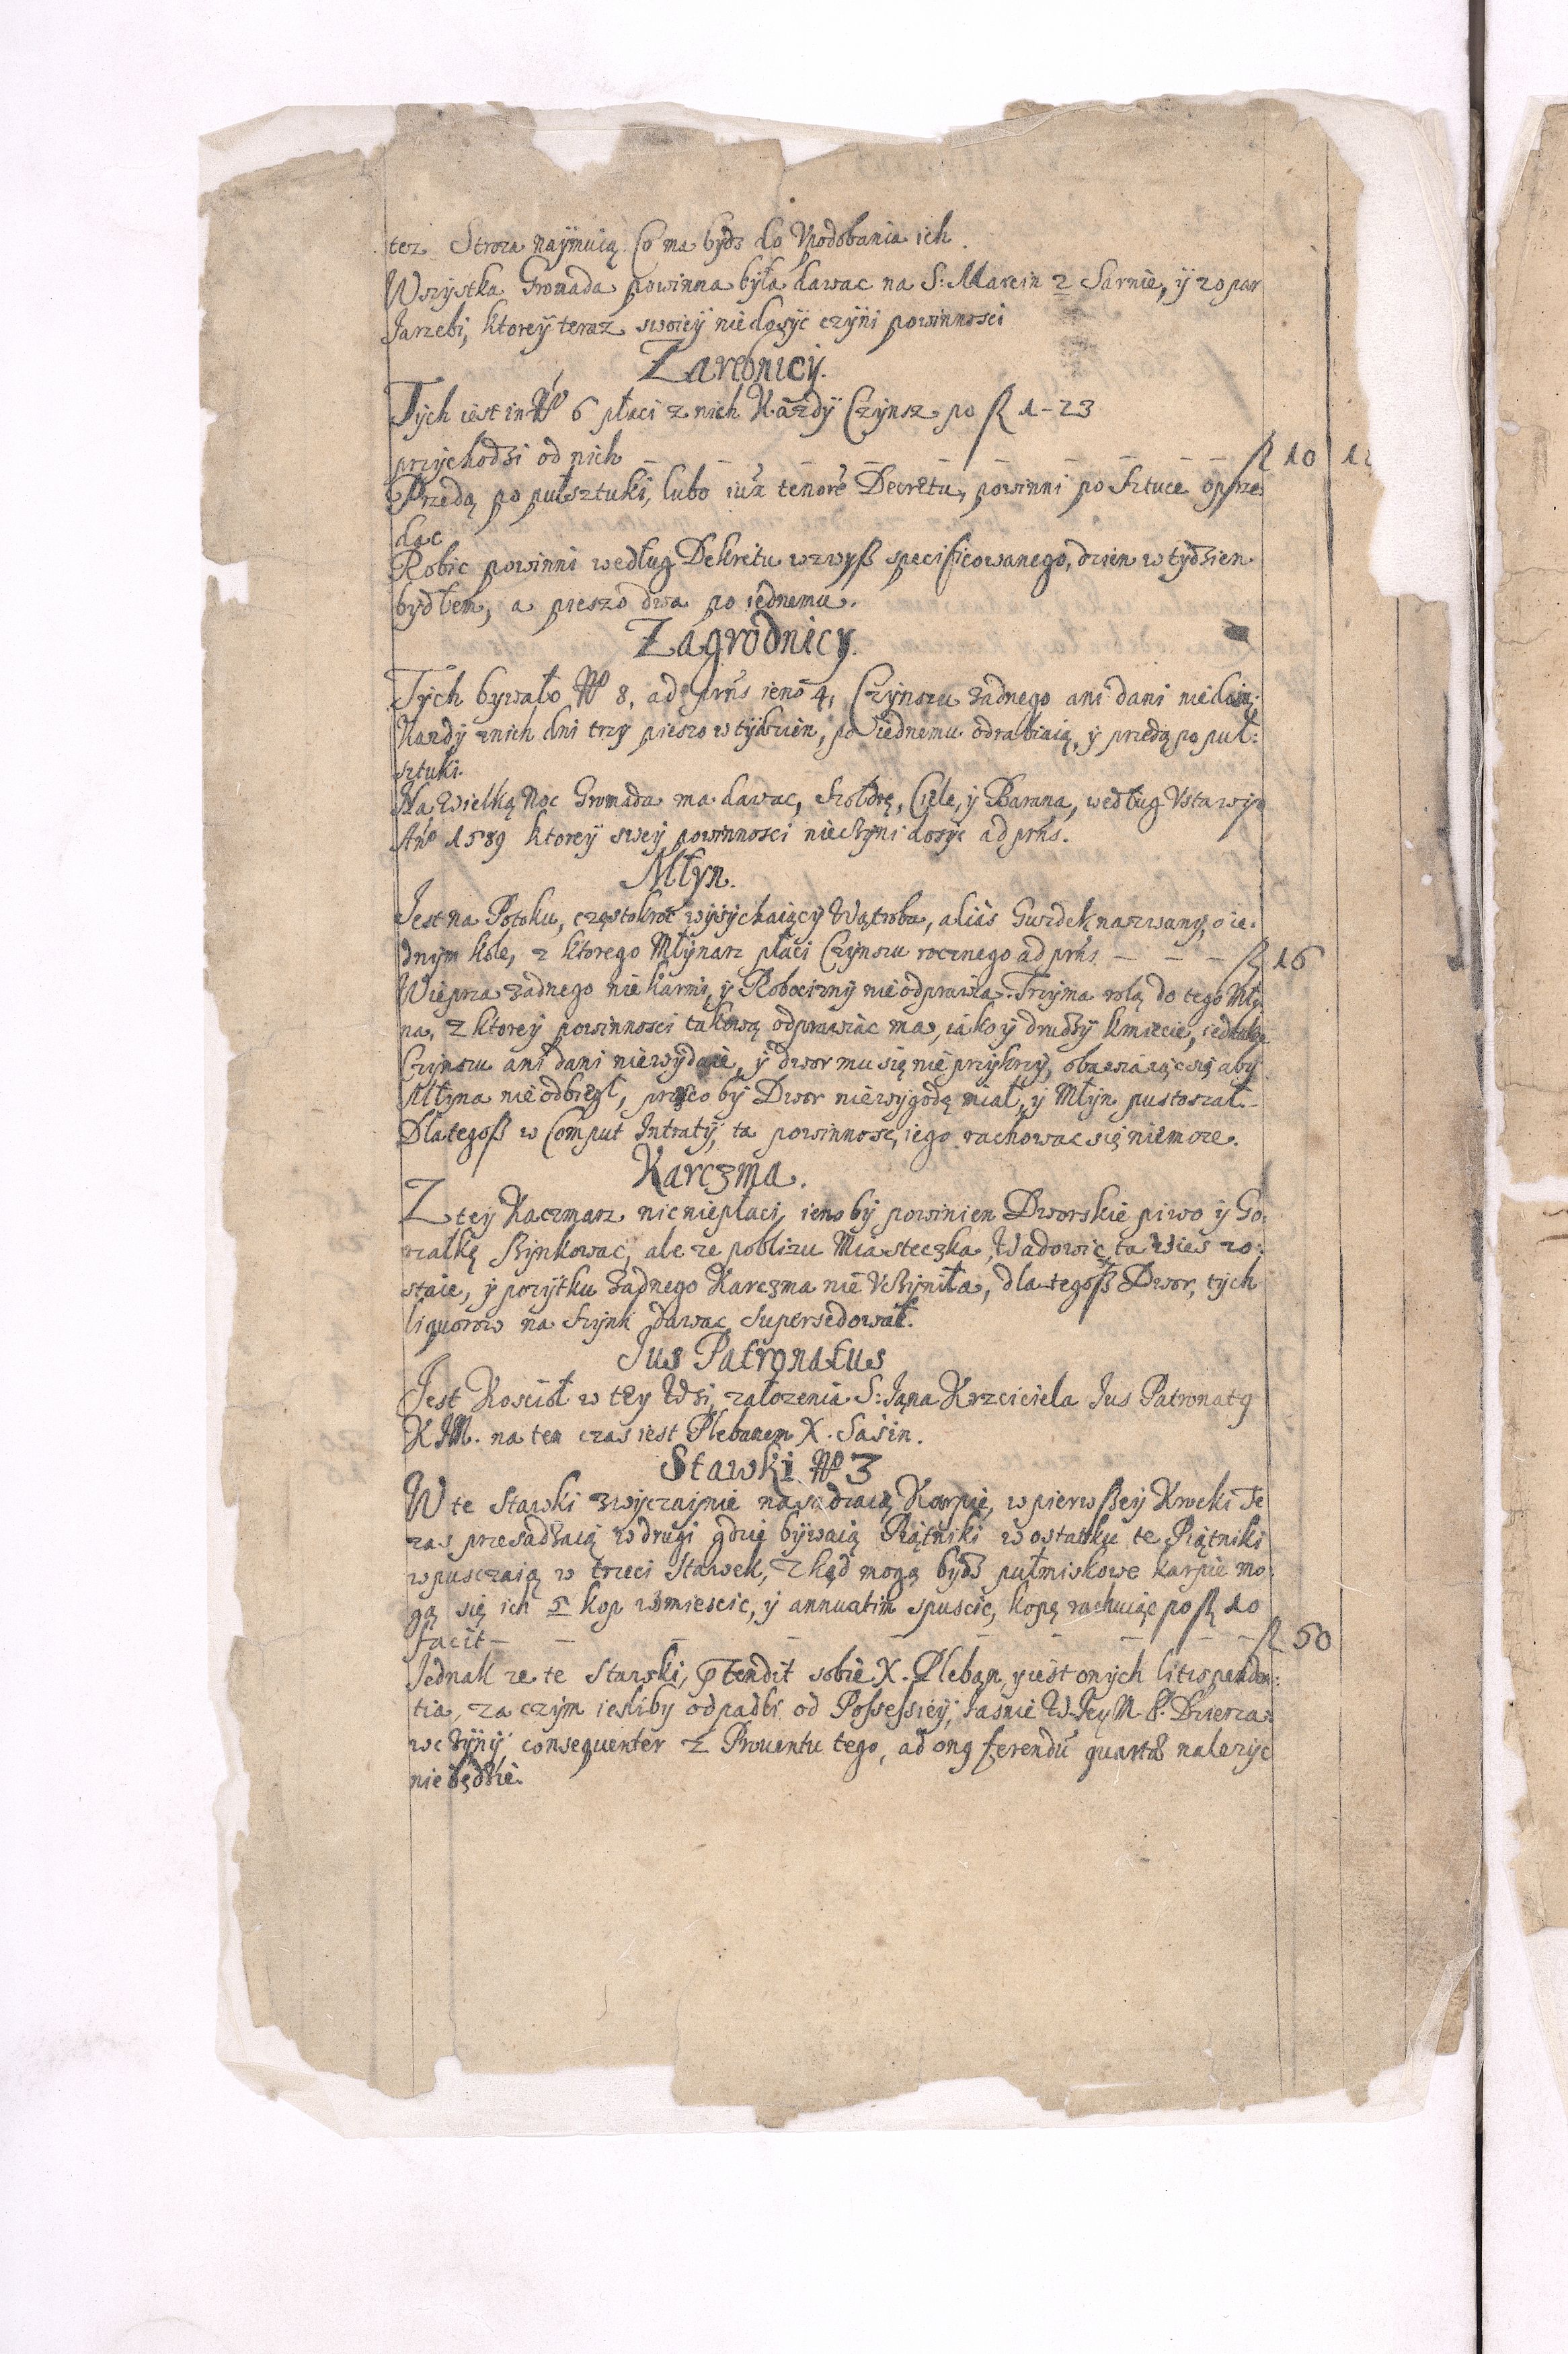 tez Stroza naÿmuią. Co ma bydz do Upodobania ich.
Wszystka Gromada powinna była dawac na S: Marcin 2 Sarnie, ÿ 20 par
Jarzebi, ktoreÿ teraz swoieÿ nie dosÿc czÿni powinnosci
Zarebnicÿ.
Tych iest in No 6 płaci z nich Każdÿ Czÿnsz po fl 1-23
przychodzi od nich – – – – – – – – fl 10 12
Przedą po pułsztuki, lubo iuxa tenorē Decretu, powinni po Sztuce oprze
dac
Robic powinni według Dekretu wzwyß specificowanego, dzien w tÿdzien
bydłem, a pieszo dwa po iednemu.
Zagrodnicy.
Tych bywało No 8, ad prns ieno 4, Czÿnszu żadnego ani dani nie daią;
Kazdÿ z nich dni trzy pieszo w tÿdzien, po iednemu odrabiaią, ÿ przędą po puł:
sztuki.
Na Wielką Noc Gromada ma dawac, Szołdrę, Cielę, ÿ Barana, według Ustawÿ
Ano 1589 ktoreÿ sweÿ powinnosci nie czÿni dosÿc ad prns.
Młyn.
Jest na Potoku, częstokroć wysÿchaiącÿ Wątroba, alias Gwzdek nazwanÿ, o ie.
dnÿm kole, z ktorego Młÿnarz płaci Czÿnszu rocznego ad prns. – – – fl 16
Wieprza żadnego nie karmi, ÿ Robociznÿ nie odprawia. Trzÿma rolą do tego Mły
na, z ktoreÿ powinnosci takową odprawiac ma, iako ÿ drudzÿ kmiecie, iednakze
Czÿnszu ani dani nie wÿdaie, ÿ dwor mu się nie przÿkrzÿ, obawiaiąc się abÿ
Młÿna nie odbiegł, przeco bÿ Dwor niewÿgodą miał, ÿ Młÿn pustoszał
Dlategoß w Comput Intratÿ, ta powinnosc, iego rachowac się nie moze.
Karczma.
Z teÿ Kaczmarz nic niepłaci, ieno bÿ powinien Dworskie piwo ÿ Go:
rzałkę szÿnkowac, ale ze poblizu Miasteczka, Wadowic, ta Wies zo:
staie, ÿ pozÿtku żadnego Karczma nie Uczÿniła, dlategoß Dwor, tÿch
liquorow na Szÿnk dawac supersedował.
Jus Patronatus
Jest Koscioł w teÿ Wsi, załozenia S: Jana Krzciciela Jus Patronatq
KJM. na ten czas iest Plebanem X. Sasin.
Stawki No 3
W te Stawki zwÿczaÿnie nasadzaią Karpie, w pierwßeÿ Kroćki Te
zas przesadzaią w drugi gdzie bÿwaią Piątniki w ostatku te Piątniki
wpuszczaią w trzeci Stawek, Zkąd mogą bÿdz pułmiskowe karpie mo
gą się ich 5 kop wmiescic, ÿ annuatim spuscic, kopą rachuiąc po fl 10
facit – – – – – – – – – fl 50
Jednak ze te Stawki, ptendit sobie X. Pleban, ÿ iest onÿch litispenden:
tia, zaczÿm iesliby odpadli od Possessieÿ, Jasnie W. Jeÿ M. P. Dzierza:
wczÿnÿ, consequenter z Prouentu tego, ad onq ferendū quartæ nalezÿc
nie będzie.